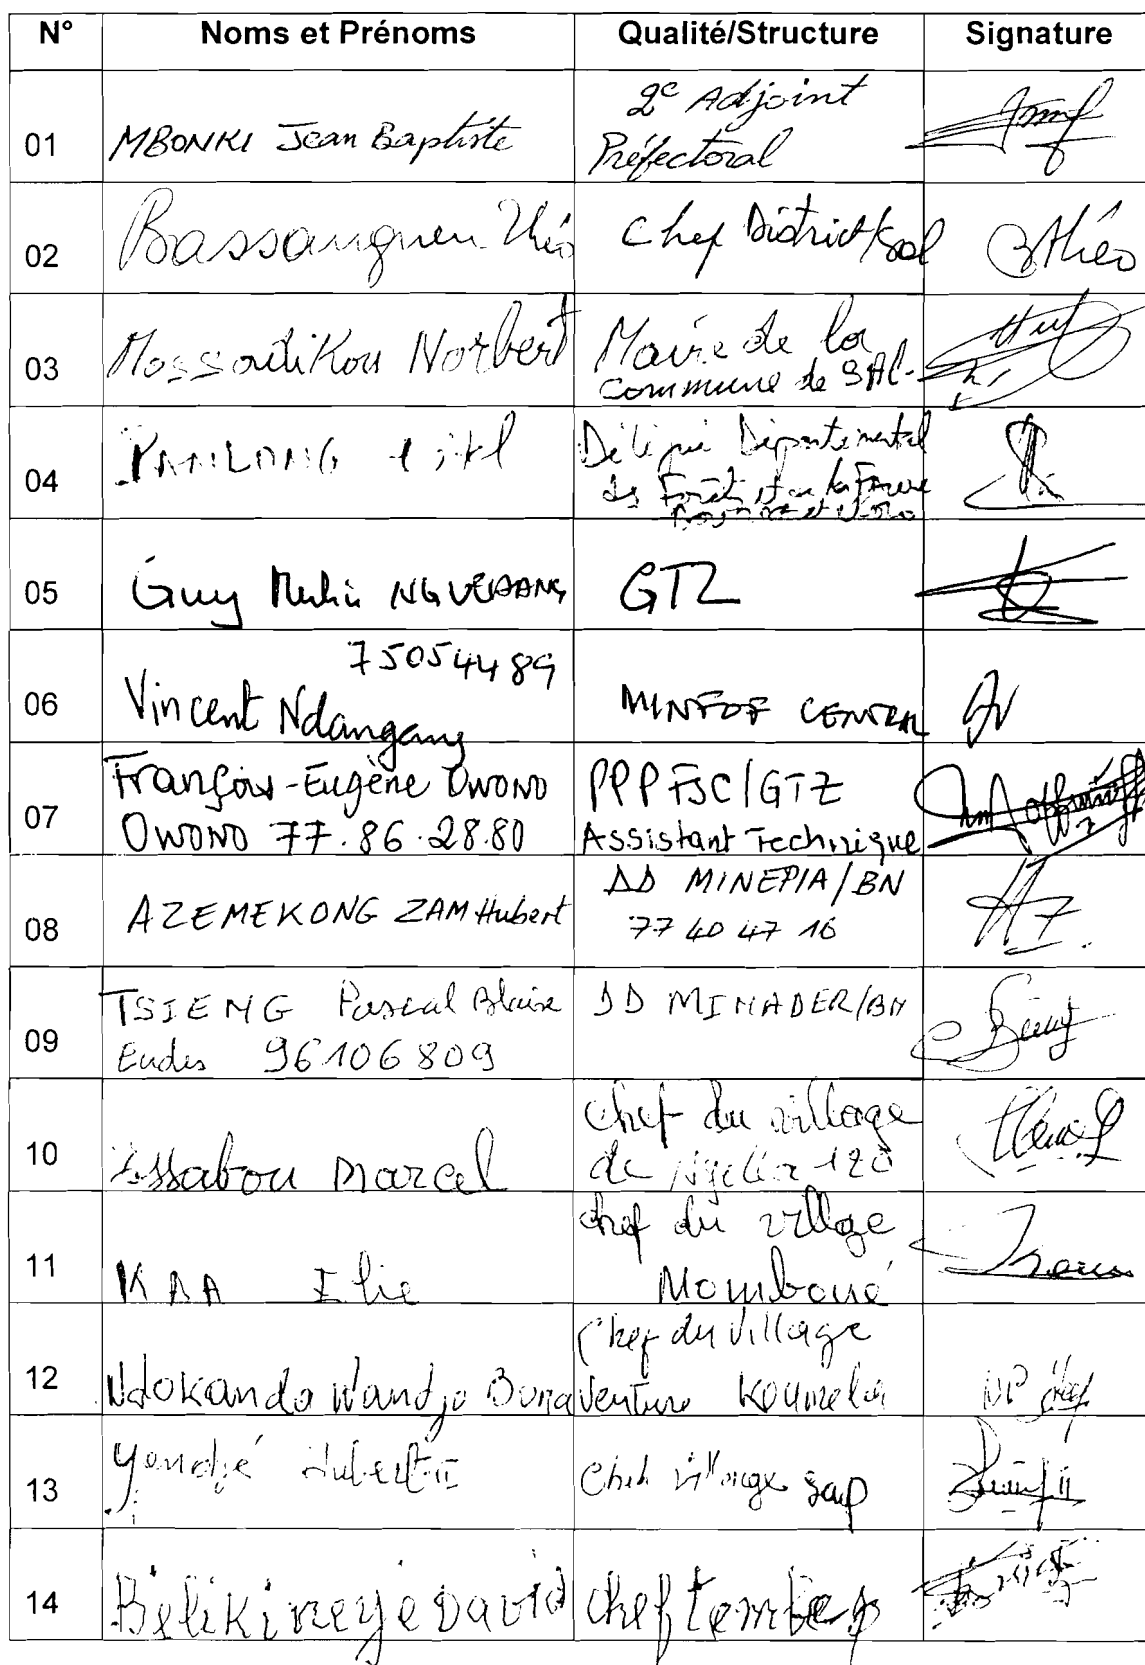 N° Noms et Prénoms Qualité/Structure Signature
01 MBONKI Jean Baptiste 2e Adjoint
Préfectoral
02 Bassanguen Théo Chef District/Sal BThéo
03 Mossadikou Norbert Maire de la
Commune de SAL
04 Délégué Départemental
des Forêts et de la Faune
05 Guy Merlin GTZ
06 75054489
Vincent Ndangang MINFOF CENTRAL
07 François-Eugène OWONO
OWONO 77.86.28.80 PPPFSC/GTZ
Assistant Technique
08 AZEMEKONG ZAM Hubert DD MINEPIA/BN
77 40 47 16
09 TSIENG Pascal Blaise
Eudes 96106809 DD MINADER/BN
10 Issabou Marcel chef du village
de 120
11 KAA Elie chef du village
Momboué
12 Ndokanda Wandjo Bonaventure Chef du Village
Koumela
13 Yendjé Hubert II Chef village Sap
14 Bélikineye David chef